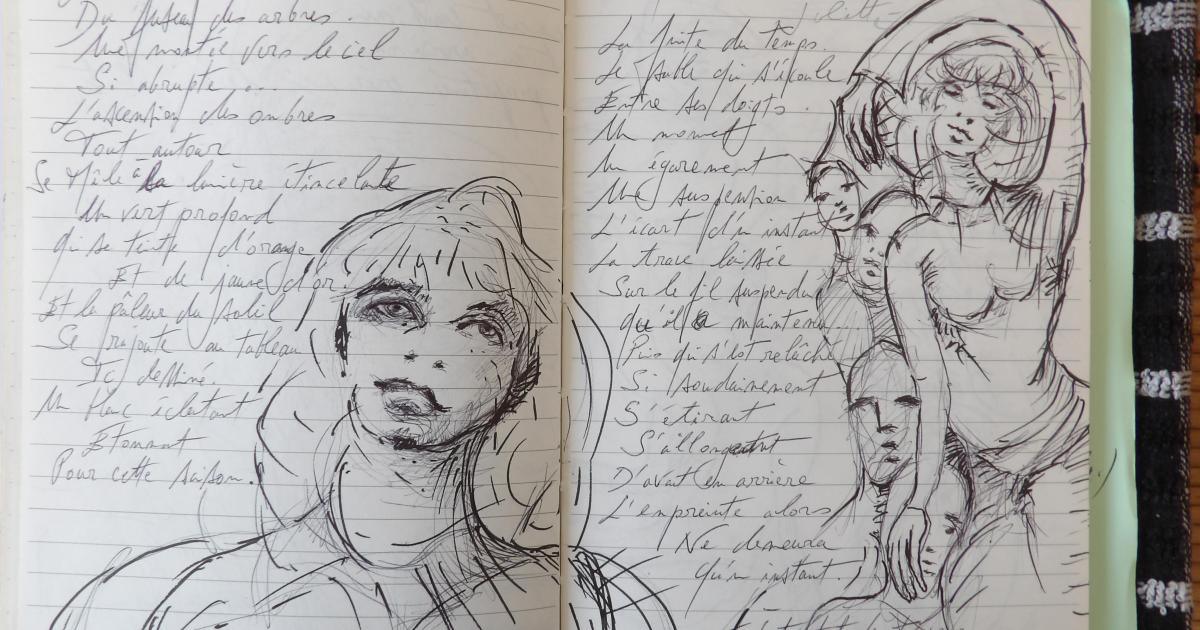 Du des arbres.
Une montée vers le ciel
Si abrupte...
L'ascension des ombres
Tout autour
Se mêle à la lumière étincelante
Un vert profond
qui se teinte d'orange
Et de jaune d'or.
Et la pâleur du soleil
Se rajoute au tableau
Ici dessiné.
Un blanc éclatant
Etonnant
Pour cette saison.
Juliette
La fuite du temps.
Le sable qui s'écoule
Entre ses doigts.
Un moment
Un égarement
Une suspension
L'écart d'un instant
La trace laissée
Sur le fil suspendu
qu'il a maintenu...
Puis qui s'est relâché
Si soudainement
S'étirant
S'allongeant
D'avant en arrière
L'empreinte alors
Ne demeura
Qu'un instant.